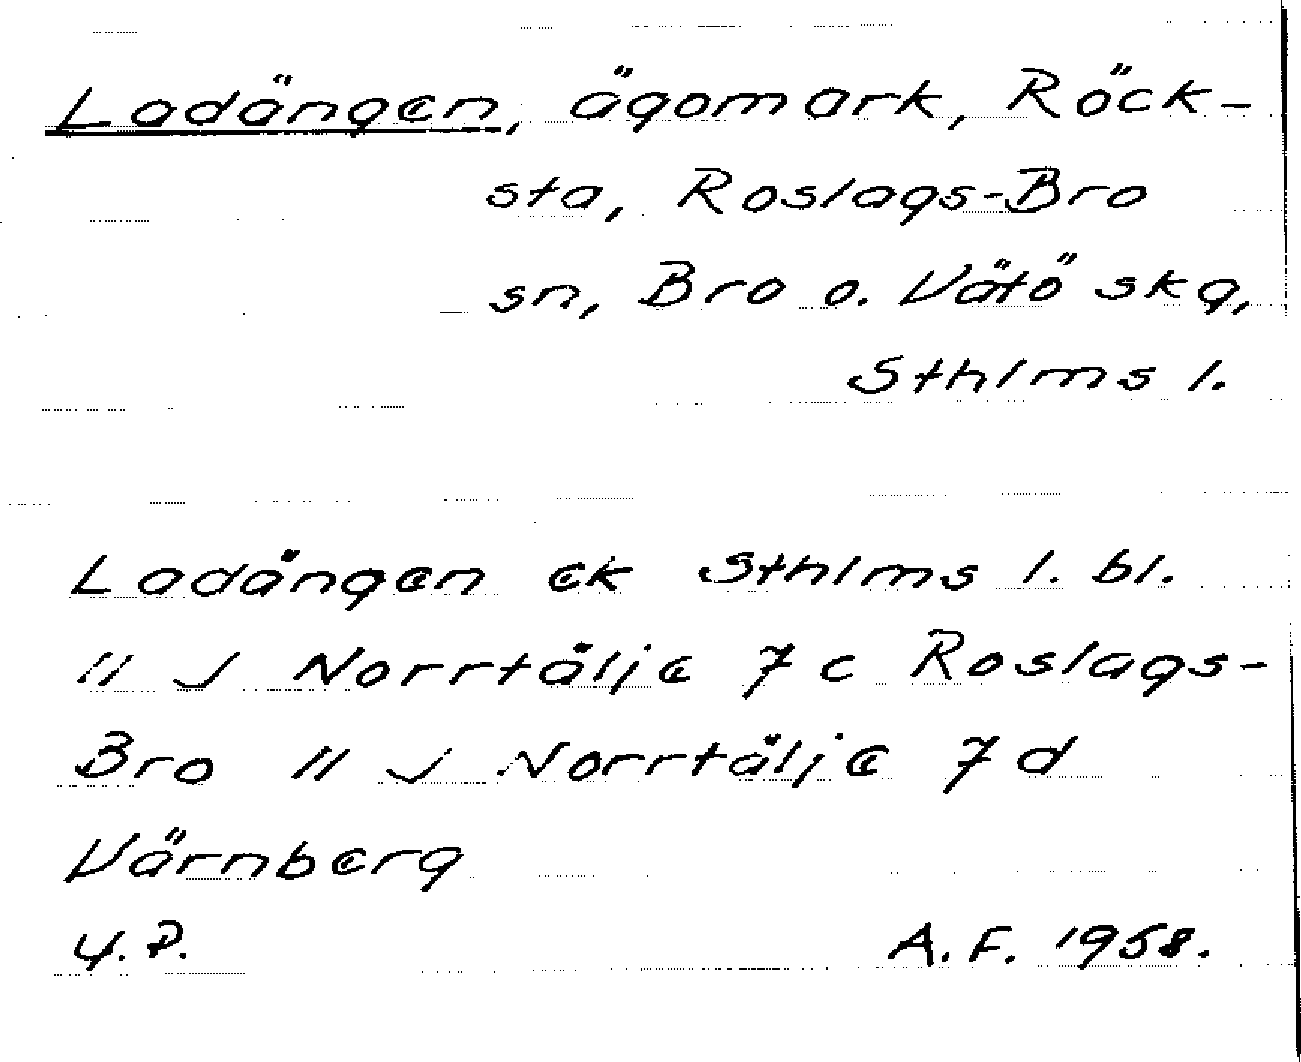 Ladängen, ägomark, Röck-
sta, Roslags-Bro
sn, Bro o. Vätö skg,
Sthlms l.
Ladängen ek Sthlms l. bl.
" J Norrtälje 7 c Roslags-
Bro " J Norrtälje 7 d
Värnberg
U.P. A.F. 1958.